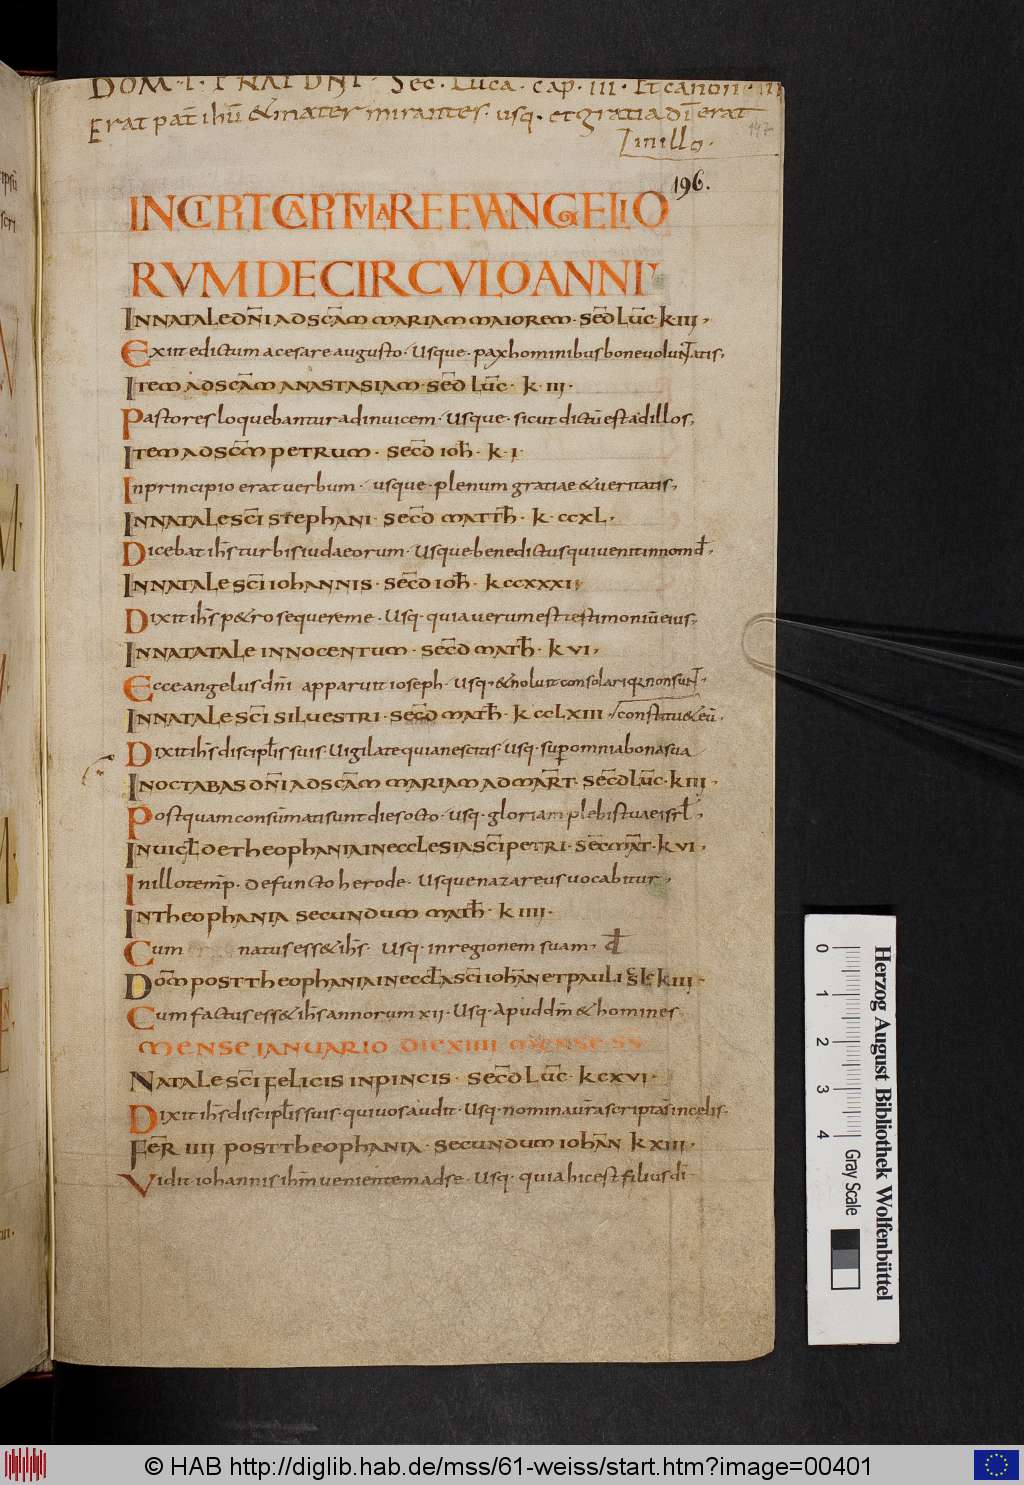 DOM · I · P NAT DNI · Sec · Luca · cap · III · Et canon · III
Erat pat̄ ihū & mater mirantes · usq · et gratia dī erat
in illo ·
147
196.
INCIPIT CAPITVLARE EVANGELIO
RVM DE CIRCVLO ANNI
IN NATALE DN̄I AD SC̄AM MARIAM MAIOREM · SEC̄D LUC̄ · K · III ·
Exiit edictum a cesare augusto · Usque · pax hominibus bone voluntatis ·
ITEM AD SC̄AM ANASTASIAM · SEC̄D LUC̄ · K · III ·
Pastores loquebantur adinvicem · Usque · sicut dictū est ad illos ·
ITEM AD SC̄M PETRUM · SEC̄D IOH̄ · K · I ·
In principio erat verbum · usque · plenum gratiae & veritatis ·
IN NATALE SC̄I STEPHANI · SEC̄D MATTH̄ · K · CCXL ·
Dicebat ih̄s turbis iudaeorum · Usque benedictus qui venit in nom d̄ ·
IN NATALE SC̄I IOHANNIS · SEC̄D IOH̄ · K CCXXXII
Dixit ih̄s p&ro sequere me · Usq · quia verum est testimoniū eius ·
IN NATATALE INNOCENTUM · SEC̄D MATH̄ · K VI ·
Ecce angelus dn̄i apparuit ioseph · Usq · & noluit consolari q non sunt ·
IN NATALE SC̄I SILUESTRI · SEC̄D MATH̄ · K CCLXIII · constitu& eū ·
Dixit ih̄s discipl̄is suis · Vigilate quia nescitis · Usq · sup omnia bona sua
IN OCTABAS DN̄I AD SC̄AM MARIAM AD MAR̄T · SEC̄D LUC̄ · K III ·
Postquam consūmati sunt dies octo · Usq · gloriam plebis tuae isrl̄ ·
IN UIGL̄ DE THEOPHANIA IN ECCLESIA SC̄I PETRI · SEC̄ MAT̄ · K VI ·
In illo temp̄ · defuncto herode · Usque nazareus vocabitur ·
IN THEOPHANIA SECUNDUM MATH̄ · K IIII ·
Cum natus ess& ih̄s · Usq · in regionem suam ·
DOM̄ POST THEOPHANIA IN ECCL̄A SC̄I IOHAN̄ ET PAULI SL̄C K III ·
Cum factus ess& ih̄s annorum XII · Usq · Apud dm̄ & homines
MENSE IANUARIO DIE XIIII MENSE SS
NATALE SC̄I FELICIS IN PINCIS · SEC̄D LUC̄ · K CXVI ·
Dixit ih̄s discipl̄is suis · qui vos audit · Usq · nomina ur̄a scripta s̄ in celis ·
FER̄ IIII POST THEOPHANIA · SECUNDUM IOHAN̄ K XIII ·
Vidit iohannis ihm̄ venientem ad se · Usq · quia hic est filius dī
Herzog August Bibliothek Wolfenbüttel
0 1 2 3 4 Gray Scale
© HAB http://diglib.hab.de/mss/61-weiss/start.htm?image=00401